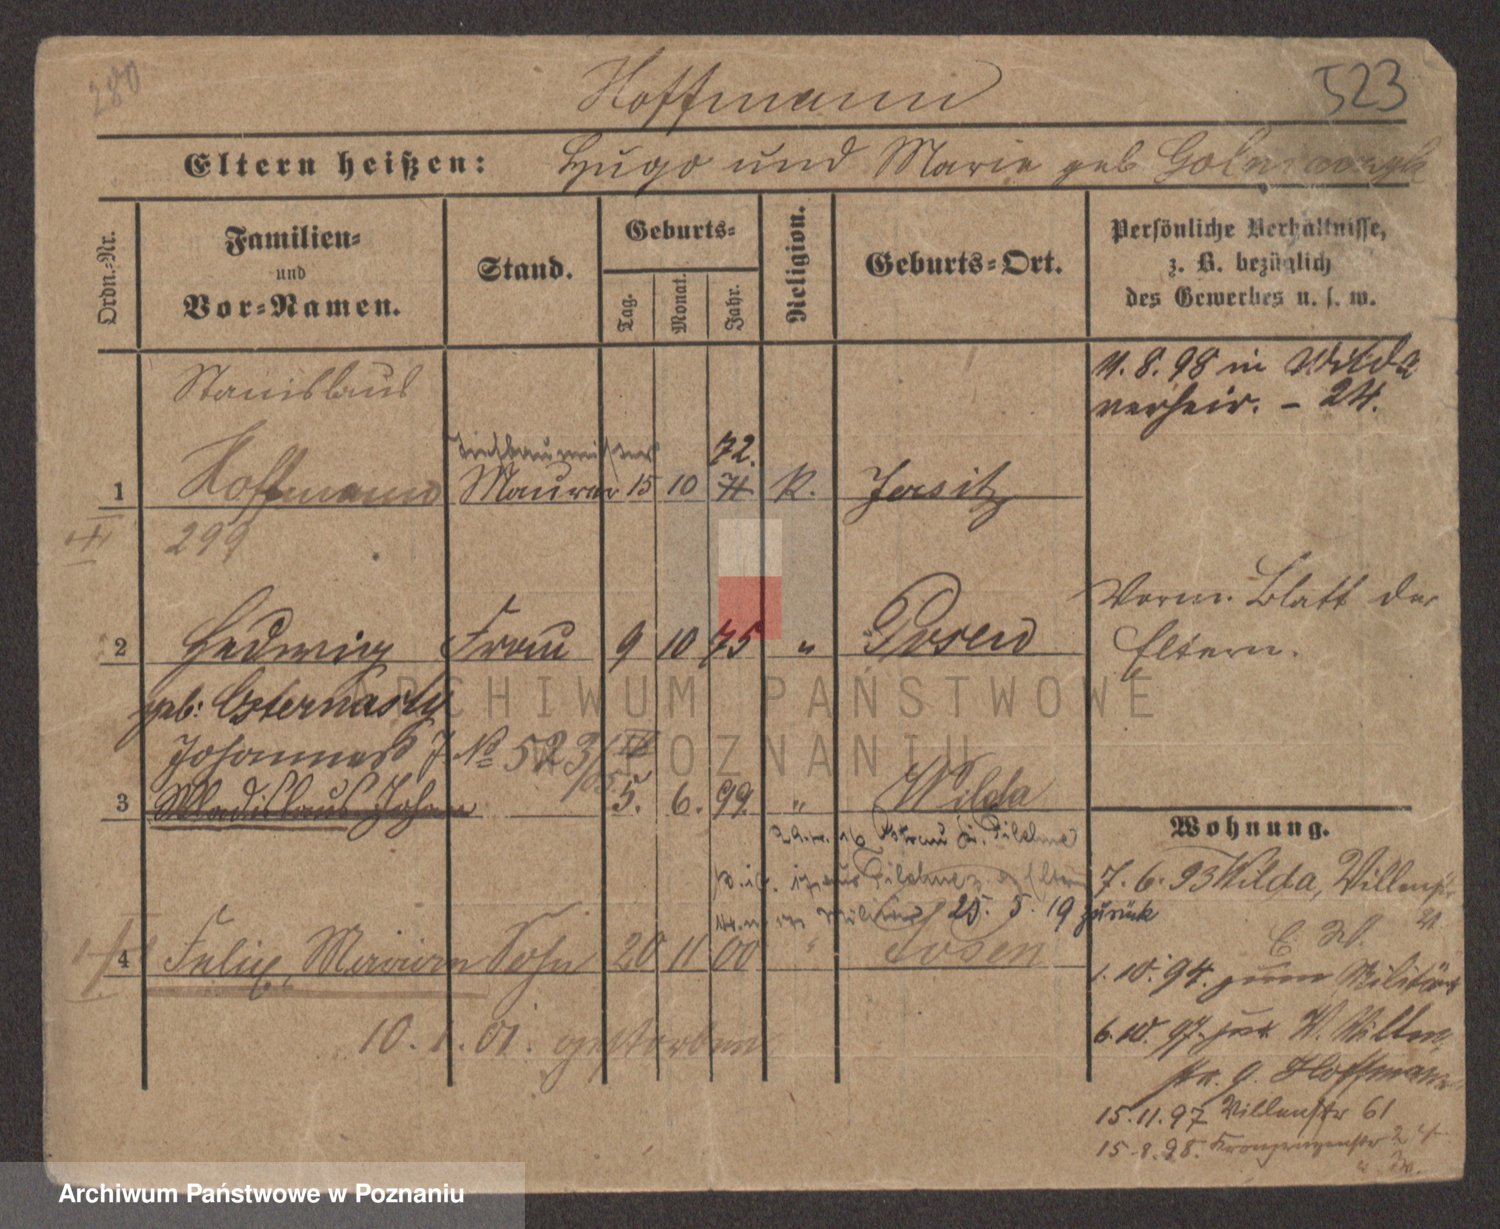 280
Hoffmann
523
Eltern heißen: Hugo und Marie geb
Ordn.-Nr.
Familien-
und
Vor-Namen.
Stand.
Geburts-
Tag.
Monat.
Jahr.
Religion.
Geburts-Ort.
Persönliche Verhältnisse,
z. B. bezüglich
des Gewerbes u. s. w.
11. 8. 98 in Wilda
verheir. - 24.
Stanislaus
72.
1 Hoffmann Maurer 15 10 71 K. Jersitz
299
Vorm. Blatt der
Eltern.
2 Hedwig Frau 9 10 75 " Posen
geb:
Johannes J. No 523
3 Wladislaus Johann 5. 6. 99. " Wilda
Wohnung.
7. 6. 93 Wilda,
25. 5. 19 zurück
4 Felix, Sohn 20 11 00 " Posen
1. 10. 94. zum Militär
10. 1. 01. gestorben
6. 10. 97. Hoffmann
15. 11. 97 Villenstr 61
15. 8. 98. Kronprinzenstr 24
ARCHIWUM PAŃSTWOWE
W POZNANIU
Archiwum Państwowe w Poznaniu